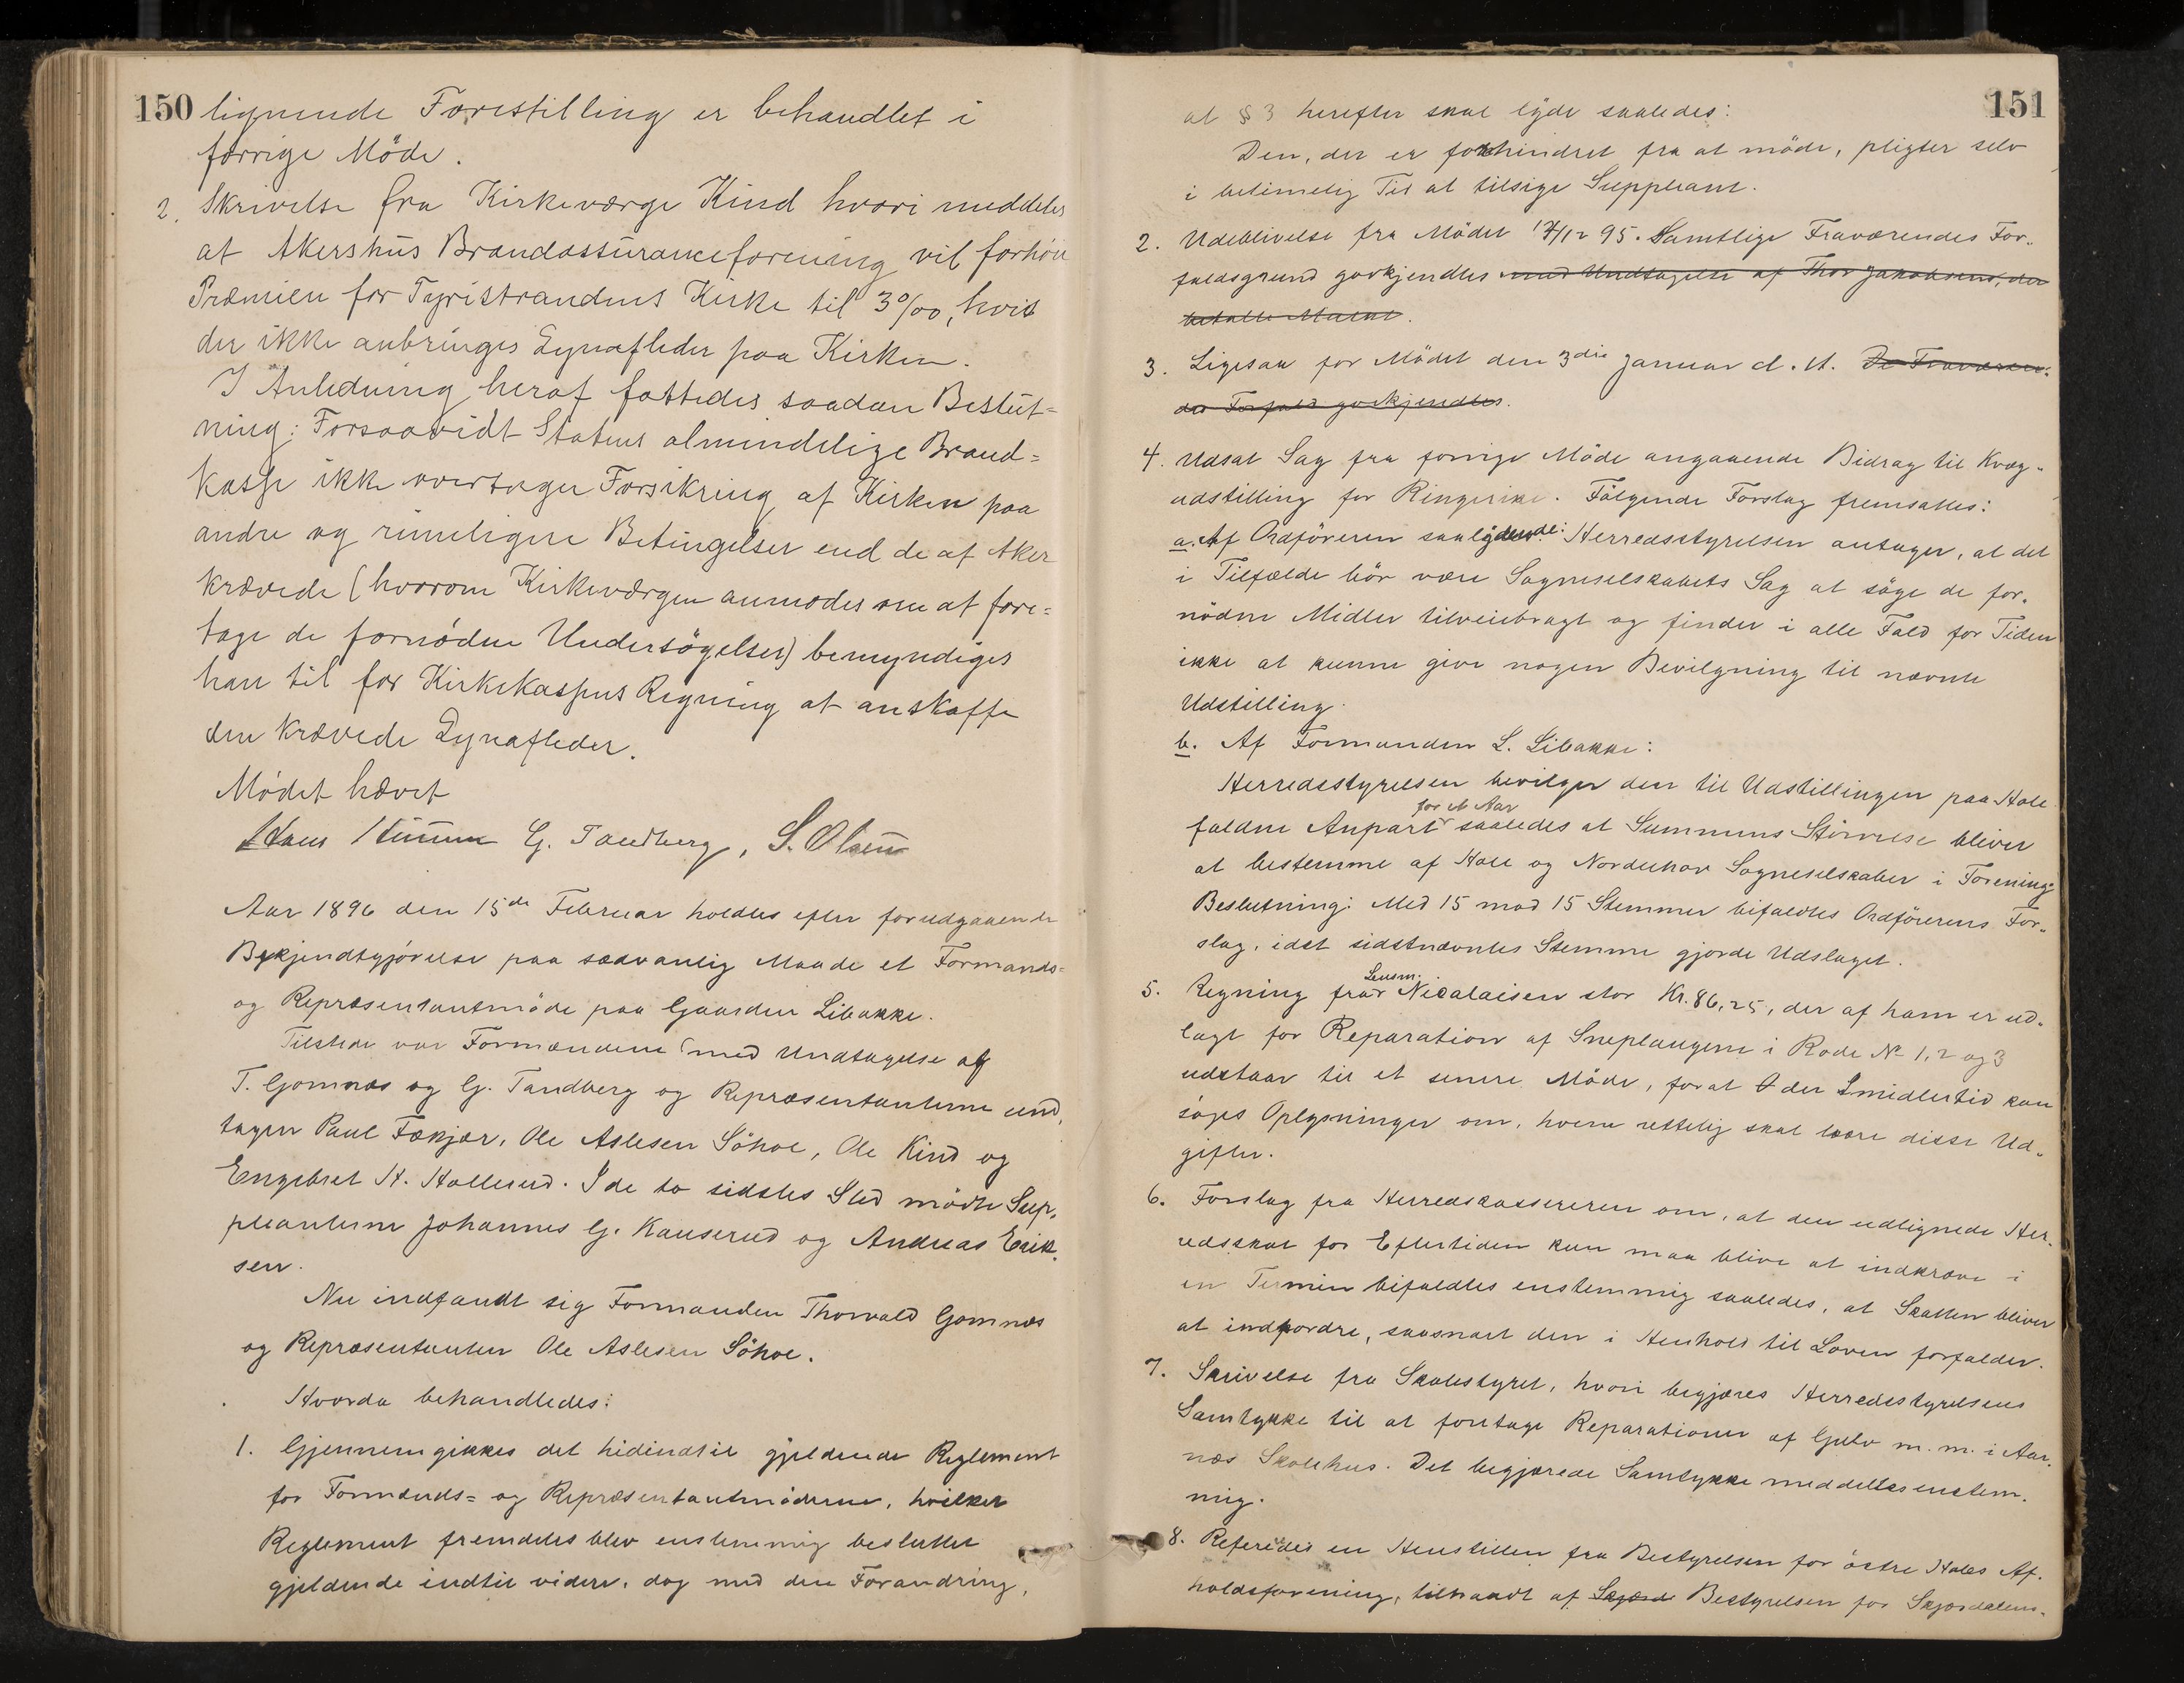 150
lignende Forestilling er behandlet i
forrige Möde.
2. Skrivelse fra Kirkeværge Kind hvori meddeles
at Akershus Brandassuranceforening vil forhöie
Præmien for Tyristrandens Kirke til 3 0/00, hvis
der ikke anbringes Lynafleder paa Kirken.
I Anledning heraf fattedes saadan Beslut=
ning: Forsaavidt Statens almindelige Brand=
kasse ikke overtager Forsikring af Kirken paa
andre og rimeligere Betingelser end de af Aker
krævede (hvorom Kirkeværgen anmodes om at fore=
tage de fornödne Undersögelser) bemyndiges
han til for Kirkekassens Regning at anskaffe
den krævede Lynafleder.
Mödet hævet
Hans Stimm G. Tandberg, S. Olsen
Aar 1896 den 15de Februar holdtes efter forudgaaende
Bekjendtgjörelse paa sædvanlig Maade et Formands=
og Repræsentantmöde paa Gaarden Libakke.
Tilstede var Formændene med Undtagelse af
T. Gomnæs og G. Tandberg og Repræsentanterne und,
tagen Paul Fækjær, Ole Aslesen Söhoe, Ole Kind og
Engebret H. Hollerud. I de to sidstes Sted mödte Sup,
pleanterne Johannes G. Kauserud og Andreas Erik.
sen.
Nu indfandt sig Formanden Thorvald Gomnæs
og Repræsentanten Ole Aslesen Söhoe.
Hvorda behandledes:
1. Gjennemgikkes det hidindtil gjeldende Reglement
for Formands= og Repræsentantmöderne, hvilket
Reglement fremdeles blev enstemmig besluttet
gjeldende indtil videre, dog med den Forandring,
151
at § 3 herefter skal lyde saaledes:
Den, der er forhindret fra at möde, pligter selv
i betimelig Tid at tilsige Suppleant.
2. Udeblivelse fra Mödet 17/12 95. Samtlige Fraværendes For„
faldsgrund godkjendtes med Undtagelse af Thor Jakobsens, der
betalte Mulkt.
3. Ligesaa for Mödet den 3die Januar d. A. De Fraværen:
des Forfald godkjendtes.
4. Udsat Sag fra forrige Möde angaaende Bidrag til Kvæg„
udstilling for Ringerike. Fölgende Forslag fremsattes:
a. Af Ordföreren saalydende: Herredsstyrelsen antager, at det
i Tilfælde bör være Sogneselskabets Sag at söge de for„
nödne Midler tilveiebragt og finder i alle Fald for Tiden
ikke at kunne give nogen Bevilgning til nævnte
Udstilling.
b. Af Formanden L. Libakke:
Herredsstyrelsen bevilger den til Udstillingen paa Hole
for et Aar
faldne Anpart saaledes at Summens Störrelse bliver
at bestemme af Hole og Norderhov Sogneselskaber i Forening.
Beslutning: Med 15 mod 15 Stemmer bifaldtes Ordförerens For„
slag, idet sidstnævntes Stemme gjorde Udslaget.
Lensm.
5. Regning fra Nicolaisen stor Kr. 86,25, der af ham er ud„
lagt for Reparation af Sneplaugene i Rode No 1, 2 og 3
udstaar til et senere Möde, forat der Imidlertid kan
söges Oplysninger om, hvem rettelig skal bære disse Ud„
gifter.
6. Forslag fra Herredskassereren om, at den udlignede Her„
redsskat for Eftertiden kun maa blive at indkræve i
en Termin bifaldtes enstemmig saaledes, at Skatten bliver
at indfordre, saasnart den i Henhold til Loven forfalder.
7. Skrivelse fra Skolestyret, hvori begjæres Herredsstyrelsens
Samtykke til at foretage Reparationer af Gulv m. m. i Aar„
næs Skolehus. Det begjærede Samtykke meddeltes enstem„
mig.
8. Refereredes en Henstillen fra Bestyrelsen for östre Holes Af„
holdsforening, tiltraadt af Skjærd Bestyrelsen for Skjærdalens„